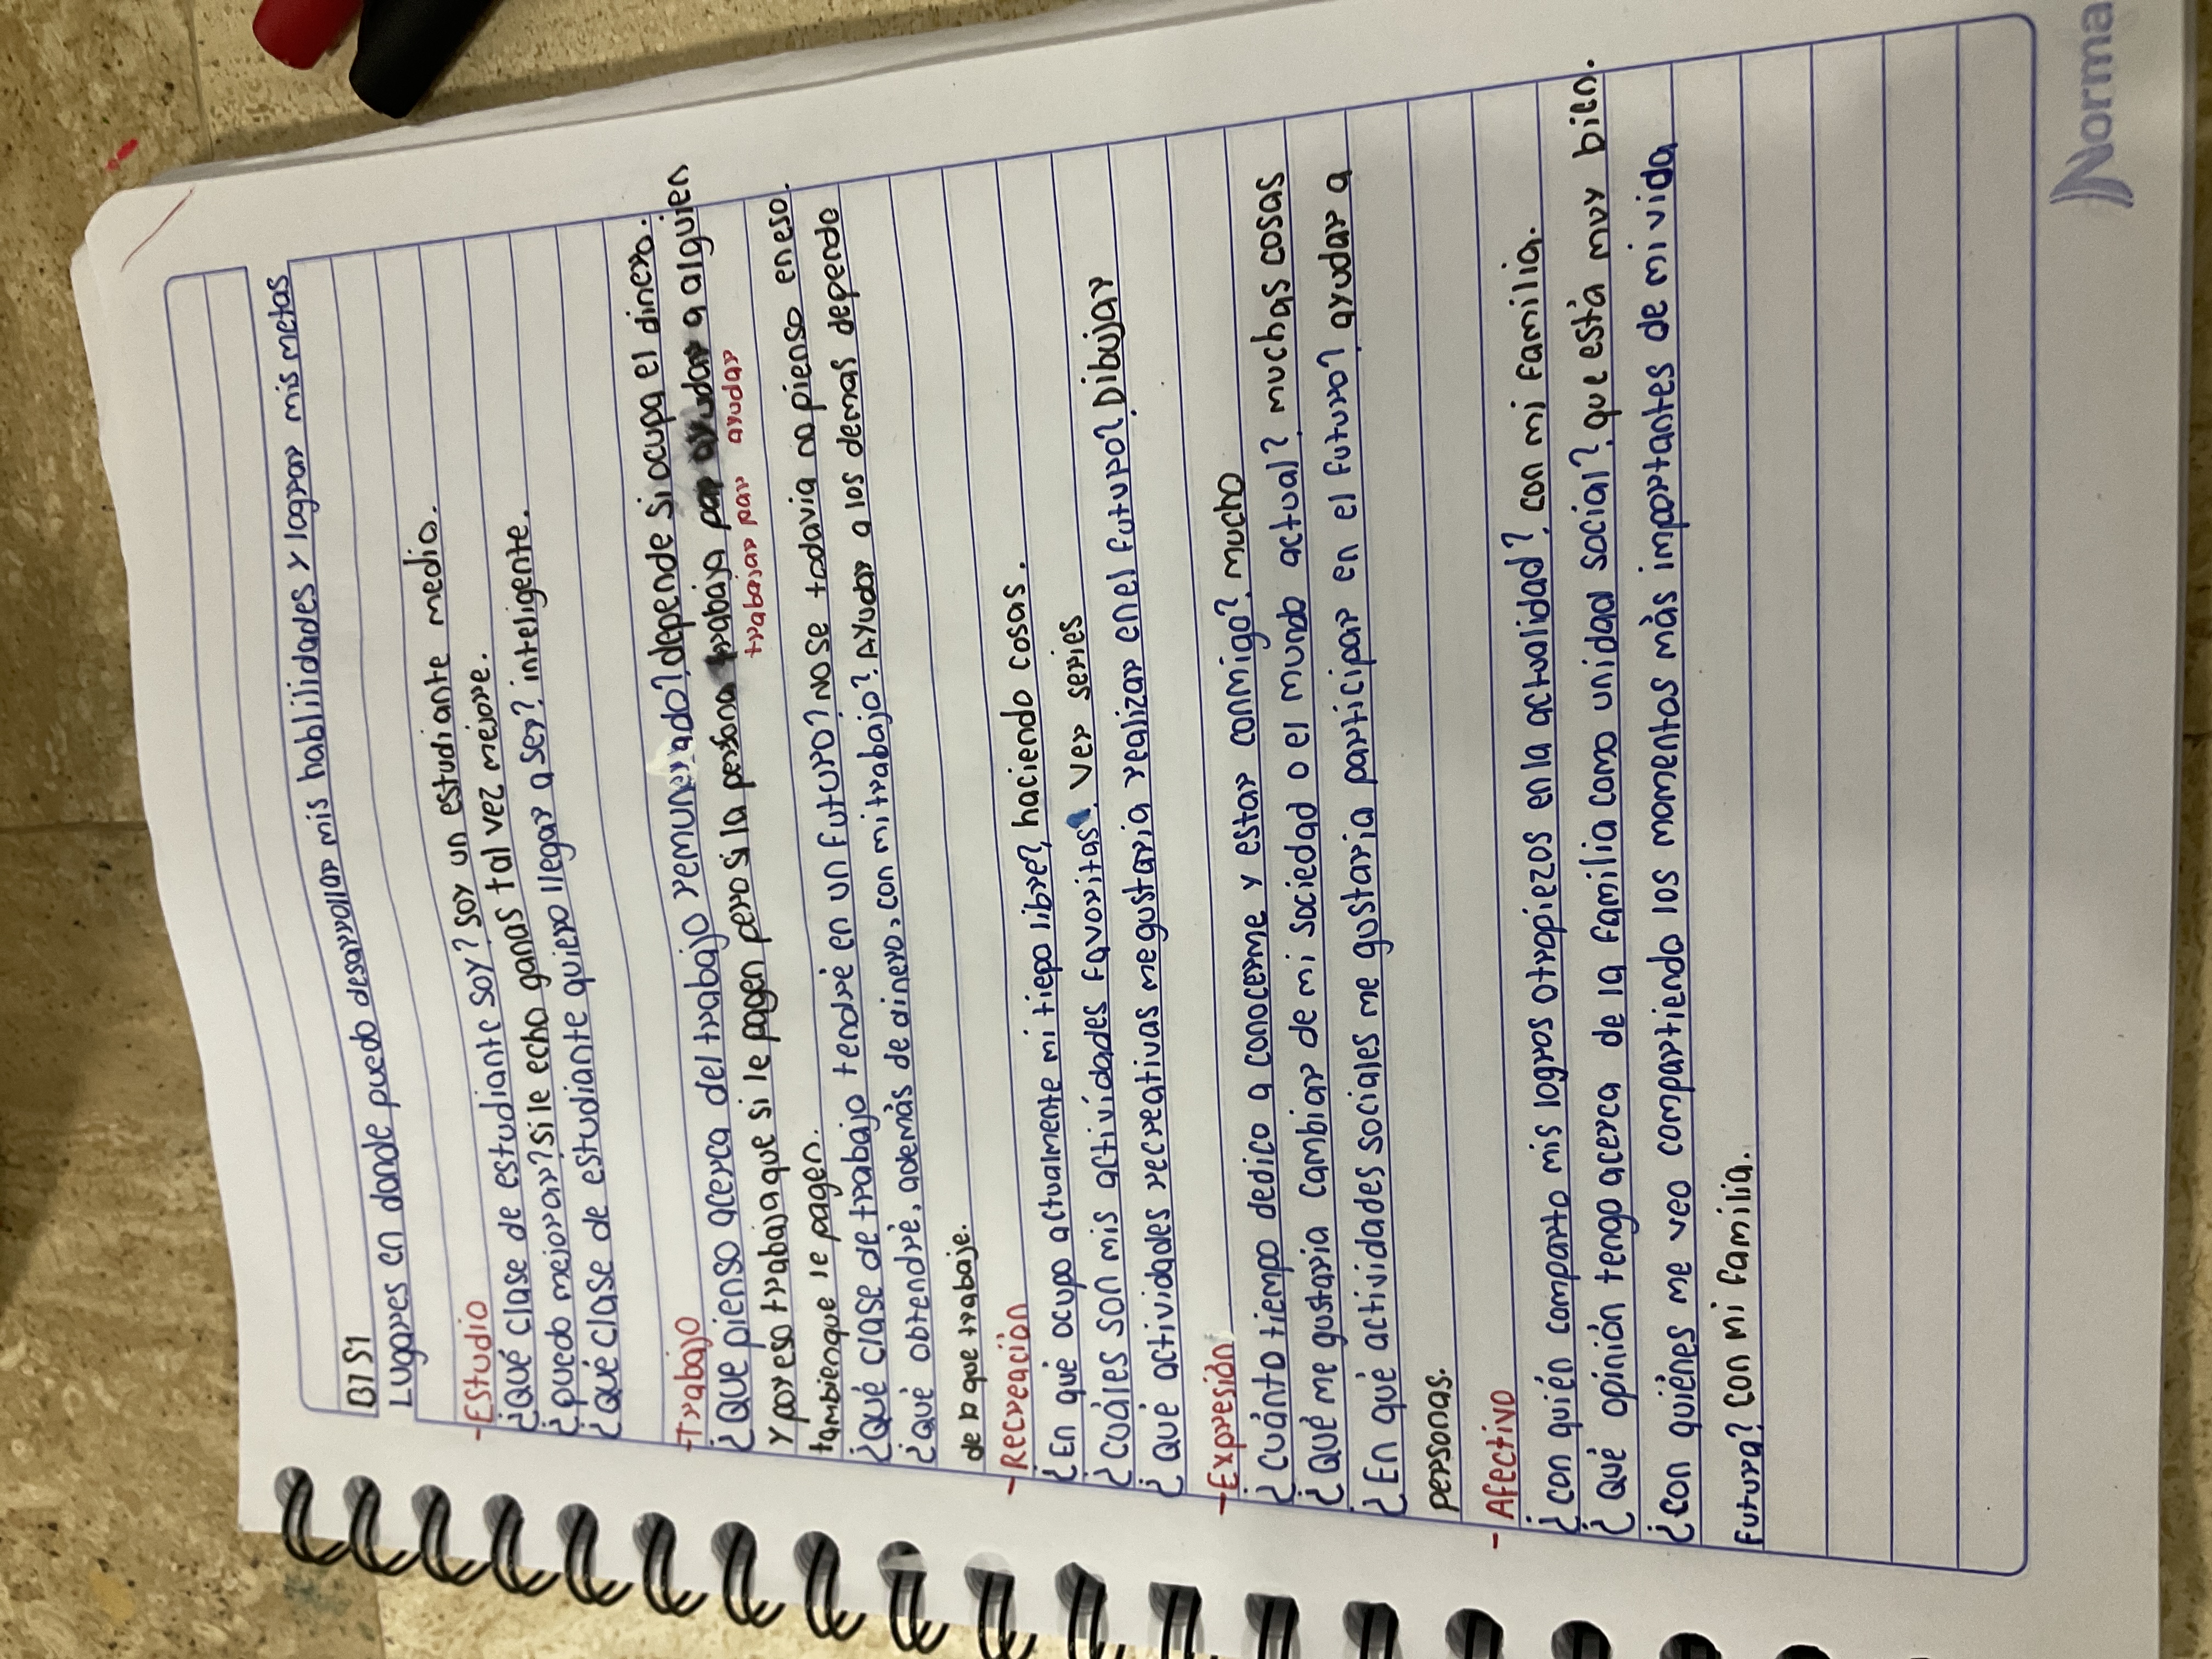 B1 S1
Lugares en donde puedo desarrollar mis hablilidades y lograr mis metas
-Estudio
¿Qué clase de estudiante soy? soy un estudiante medio.
¿puedo mejorar? si le echo ganas tal vez mejore.
¿Qué clase de estudiante quiero llegar a ser? inteligente.
-Trabajo
¿Que pienso acerca del trabajo remunerado? depende si ocupa el dinero.
y por eso trabaja que si le pagen pero si la persona trabaja por ayudar a alguien
trabajar por ayudar
tambien que le pagen.
¿Qué clase de trabajo tendré en un futuro? no se todavia no pienso en eso.
¿Qué obtendré, además de dinero, con mi trabajo? Ayudar a los demas depende
de a que trabaje.
-Recreación
¿En qué ocupo actualmente mi tiepo libre? haciendo cosas.
¿Cuáles son mis actividades favoritas? ver series
¿Qué actividades recreativas me gustaría realizar en el futuro? Dibujar
-Expresión
¿Cuánto tiempo dedico a conocerme y estar conmigo? mucho
¿Qué me gustaria cambiar de mi sociedad o el mundo actual? muchas cosas
¿En qué actividades sociales me gustaria participar en el futuro? ayudar a
personas.
- Afectivo
¿Con quién comparto mis logros o tropiezos en la actualidad? con mi familia.
¿Qué opinión tengo acerca de la familia como unidad social? que está muy bien.
¿Con quiénes me veo compartiendo los momentos más importantes de mi vida
futura? Con mi familia.
Norma